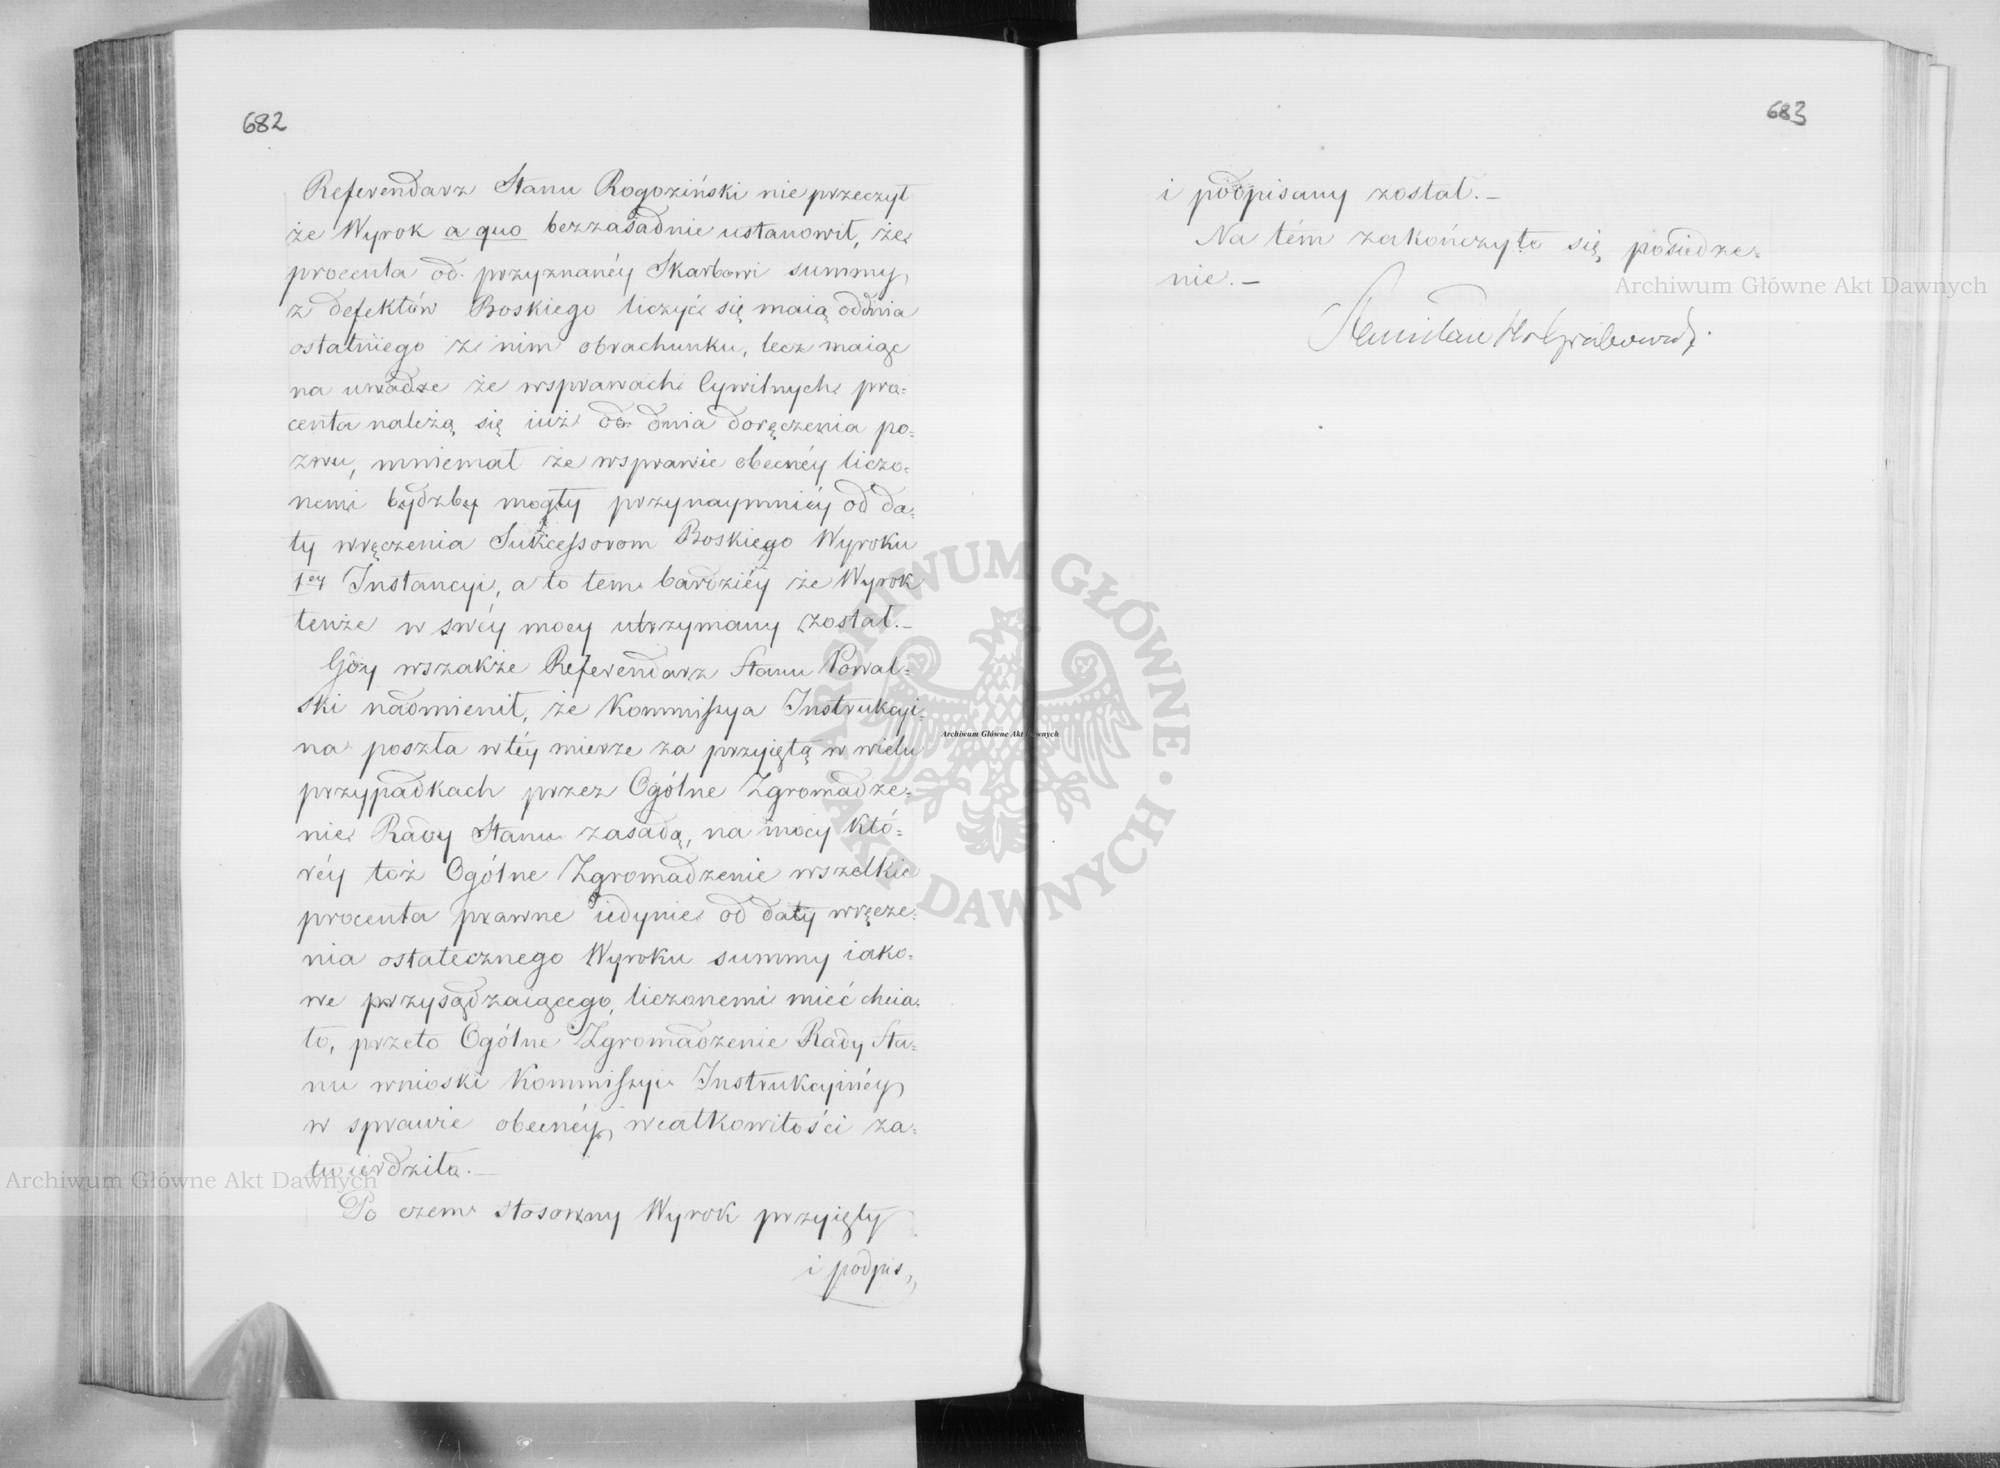 682
Referendarz Stanu Rogoziński nie przeczył
że Wyrok a quo bezzasadnie ustanowił, że
procenta od przyznanéy Skarbowi summy
z defektów Boskiego liczyć się maią od dnia
ostatniego z nim obrachunku, lecz maiąc
na uwadze że wsprawach Cywilnych pro-
centa należą się iuż od dnia doręczenia po-
zwu, mniemał że wsprawie obecnéy liczo-
nemi bydźby mogły przynaymniéy od da-
ty wręczenia Sukcessorom Boskiego Wyroku
1ey Instancyi, a to tem bardziéy że Wyrok
tenże w swéy mocy utrzymany został.-
Gdy wszakże Referendarz Stanu Powal-
ski nadmienił, że Kommissya Instrukcyi-
na poszła wtéy mierze za przyiętą w wielu
przypadkach przez Ogólne Zgromadze-
nie Rady Stanu zasadą, na mocy któ-
réy toż Ogólne Zgromadzenie wszelkie
procenta prawne iedynie od daty wręcze-
nia ostatecznego Wyroku summy iako-
we przysądzaiącego, liczonemi mieć chcia-
ło, przeto Ogólne Zgromadzenie Rady Sta-
nu wnioski Kommissyi Instrukcyinéy
w sprawie obecnéy wcałkowitości za-
twierdziło.-
Po czem stosowny Wyrok przyięty
i podpis,
683
i podpisany został.-
Na tém zakończyło się posiedze-
nie.-
Stanisław Hr Grabowski.
Archiwum Główne Akt Dawnych
Archiwum Główne Akt Dawnych
Archiwum Główne Akt Dawnych
ARCHIWUM GŁÓWNE AKT DAWNYCH